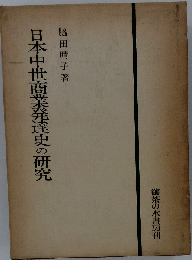 脇田晴子著
日本中世商業発達史の研究
御茶の水書房刊